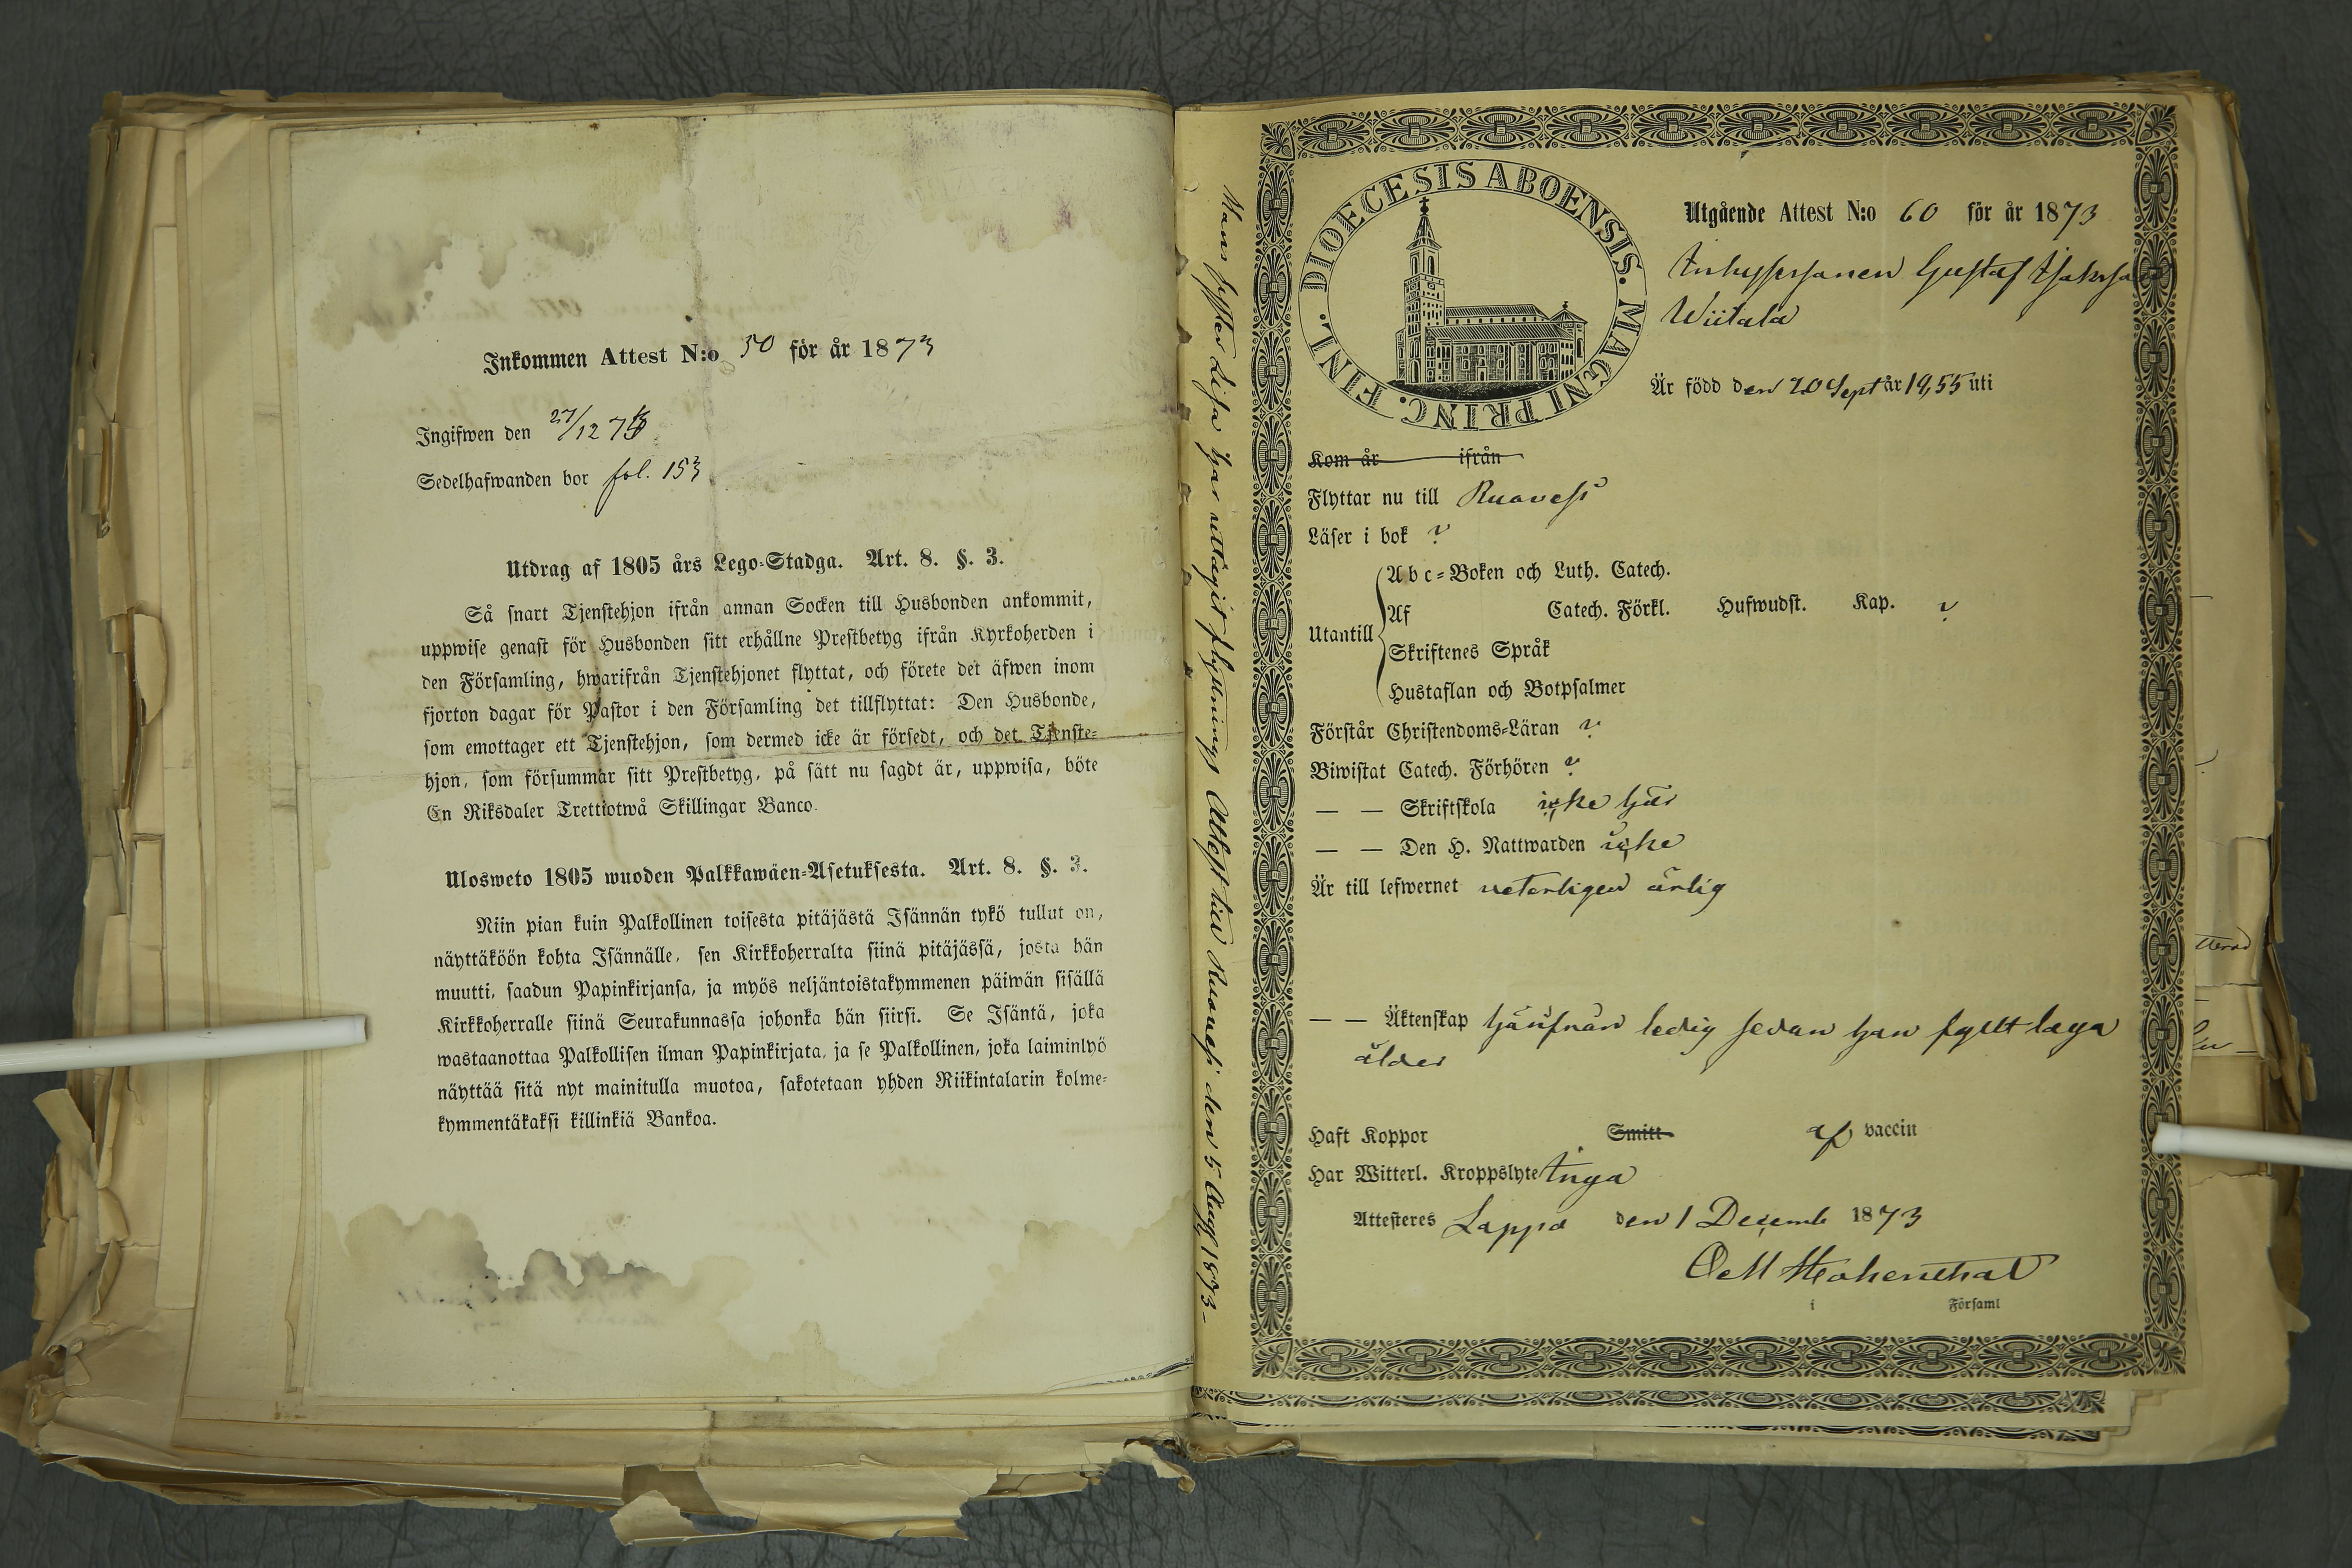 Inkommen Attest N:o 50 för år 1873
Ingifwen den 27/12 73
Sedelhafwanden bor fol. 153
Utdrag af 1805 års Lego-Stadga. Art. 8. §. 3.
Så snart Tjenstehjon ifrån annan Socken till Husbonden ankommit,
uppwise genast för Husbonden sitt erhållne Prestbetyg ifrån Kyrkoherden i
den Församling, hwarifrån Tjenstehjonet flyttat, och förete det äfwen inom
fjorton dagar för Pastor i den Församling det tillflyttat: Den Husbonde,
som emottager ett Tjenstehjon, som dermed icke är försedt, och det Tjenste-
hjon, som försummar sitt Prestbetyg, på sätt nu sagdt är, uppwisa, böte
En Riksdaler Trettiotwå Skillingar Banco.
Ulosweto 1805 wuoden Palkkawäen-Asetuksesta. Art. 8. §. 3.
Niin pian kuin Palkollinen toisesta pitäjästä Isännän tykö tullut on,
näyttäköön kohta Isännälle, sen Kirkkoherralta siinä pitäjässä, josta hän
muutti, saadun Papinkirjansa, ja myös neljäntoistakymmenen päiwän sisällä
Kirkkoherralle siinä Seurakunnassa johonka hän siirsi. Se Isäntä, joka
wastaanottaa Palkollisen ilman Papinkirjata, ja se Palkollinen, joka laiminlyö
näyttää sitä nyt mainitulla muotoa, sakotetaan yhden Riikintalarin kolme-
kymmentäkaksi killinkiä Bankoa.
Hans syster Lisa har uttagit flyttnings Attest till Ruovesi den 5 Aug 1873-
DIOECESIS ABOENSIS. MAGNI PRINC. FINL.
Utgående Attest N:o 60 för år 1873
Inhysessonen Gustaf Isaksson
Wiitala
Är född den 20 Sept år 1855 uti
Kom år ifrån
Flyttar nu till Ruovesi
Läser i bok ?
Utantill
Abc-Boken och Luth. Catech.
Af Catech. Förkl. Hufwudst. Kap. ?
Skriftenes Språk
Hustaflan och Botpsalmer
Förstår Christendoms-Läran ?
Biwistat Catech. Förhören ?
— — Skriftskola icke här
— — Den H. Nattwarden icke
Är till lefwernet veterligen ärlig
— — Äktenskap härifrån ledig sedan han fyllt laga
ålder
Haft Koppor Smitt af vaccin
Har Witterl. Kroppslyte Inga
Attesteres Lappo den 1 Decemb 1873
i Församl